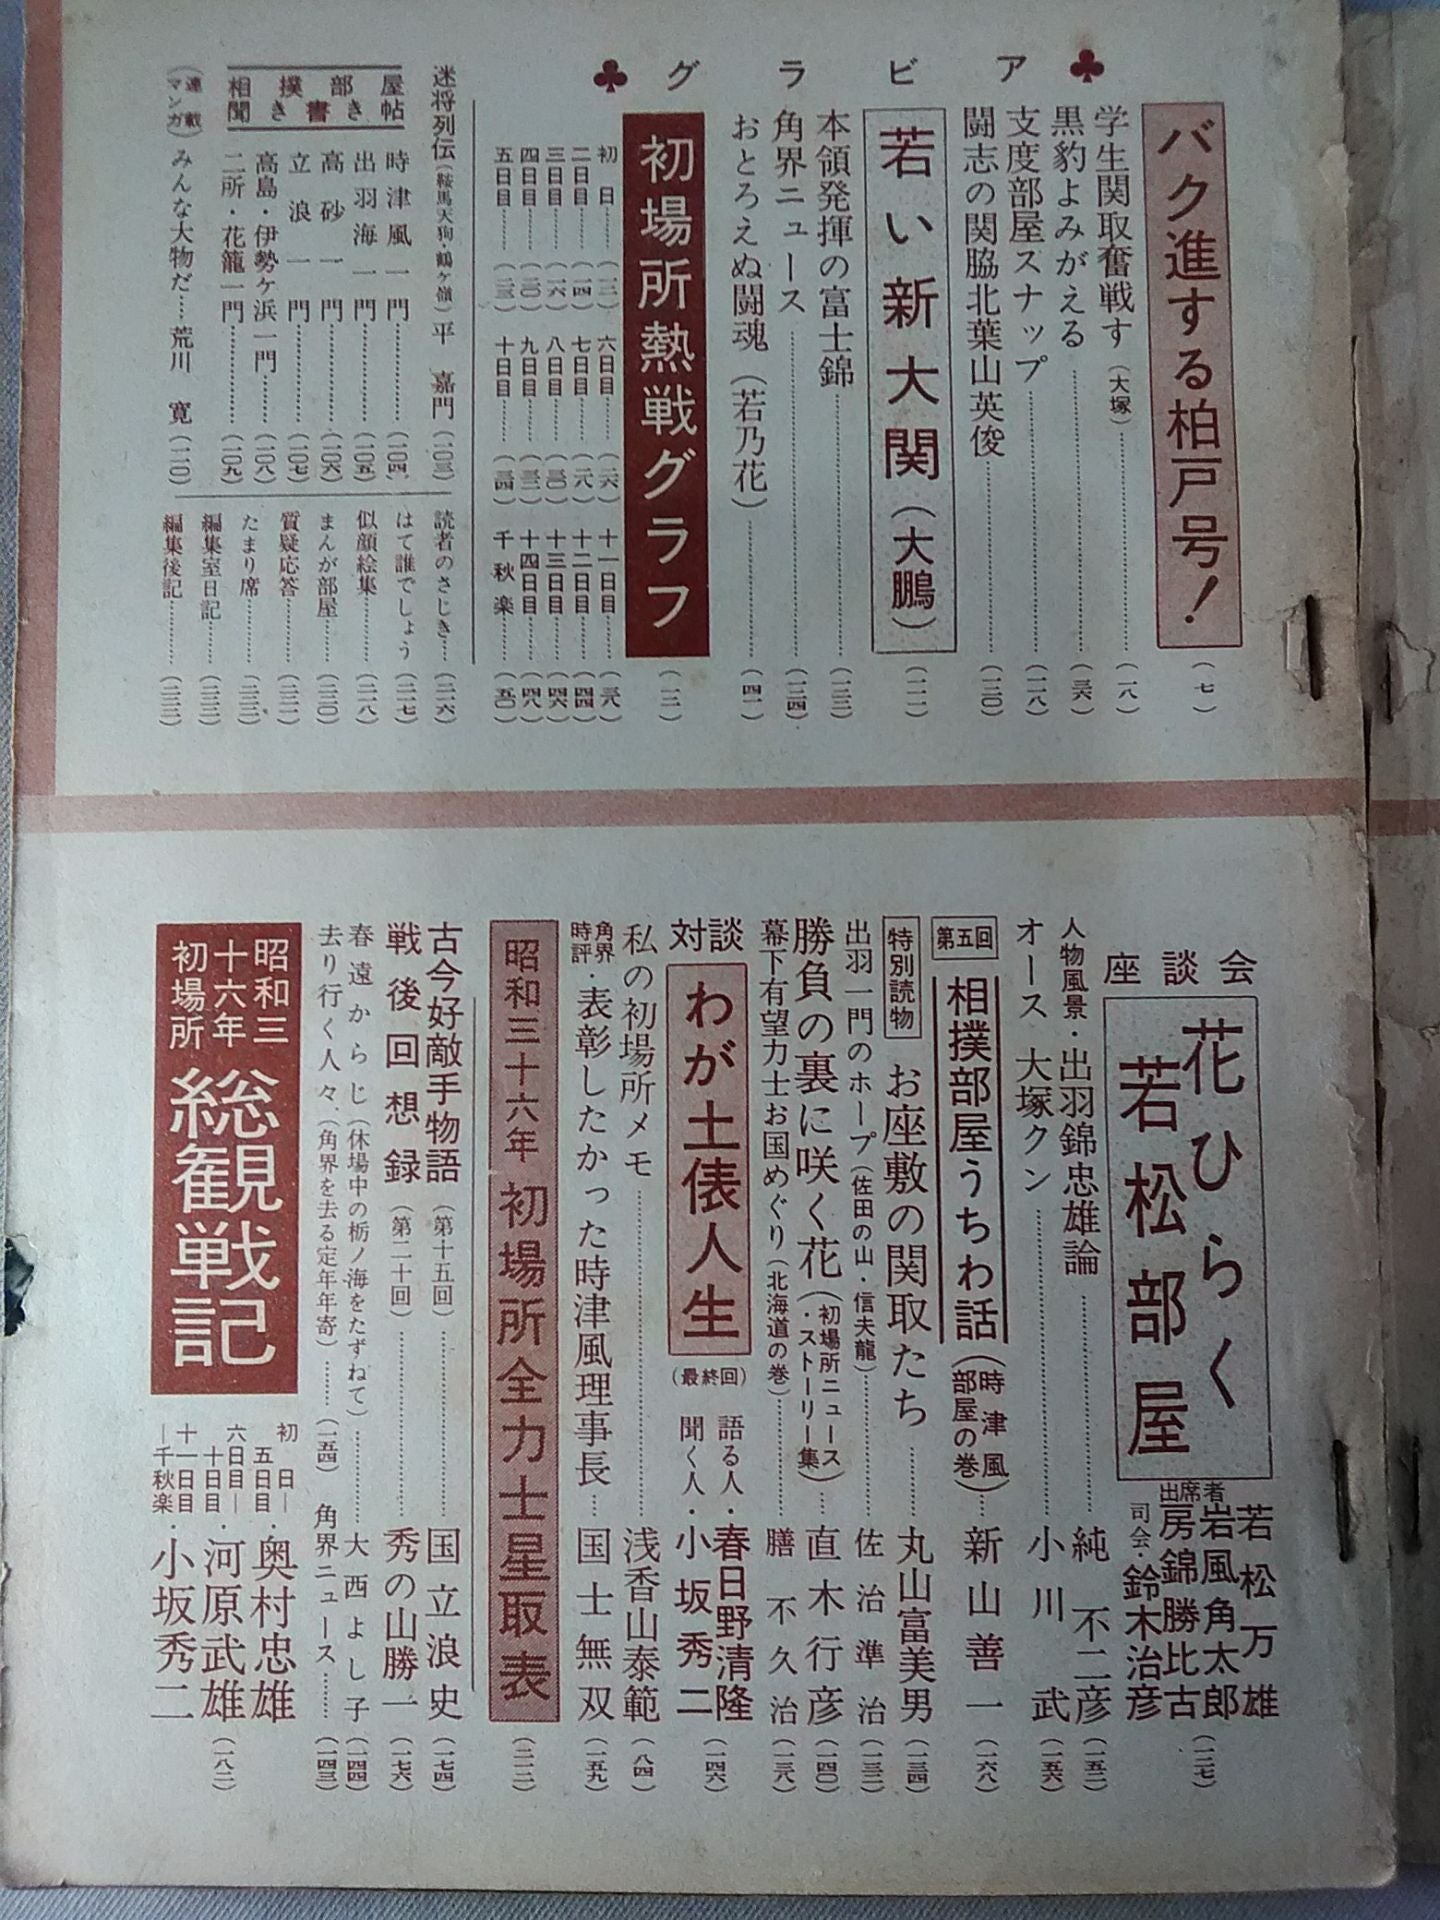 ♣グラビア♣
バク進する柏戸号！（七）
学生関取奮戦す（大塚）……（一八）
黒豹よみがえる……（三六）
支度部屋スナップ……（一一八）
闘志の関脇北葉山英俊……（一二〇）
若い新大関（大鵬）（一一一）
本領発揮の富士錦……（一三三）
角界ニュース……（一三四）
おとろえぬ闘魂（若乃花）……（四一）
初場所熱戦グラフ（一一）
初日……（一二）　六日目……（二六）　十一日目……（三八）
二日目……（一四）　七日目……（二八）　十二日目……（四四）
三日目……（一六）　八日目……（三〇）　十三日目……（四六）
四日目……（二〇）　九日目……（三二）　十四日目……（四八）
五日目……（二三）　十日目……（三四）　千秋楽……（五〇）
迷将列伝（鞍馬天狗・鶴ヶ嶺）平　嘉門（一〇三）
相撲部屋聞き書き帖
時津風一門……（一〇四）
出羽海一門……（一〇五）
高砂一門……（一〇六）
立浪一門……（一〇七）
高島・伊勢ケ浜一門……（一〇八）
二所・花籠一門……（一〇九）
（連載マンガ）みんな大物だ…荒川　寛（一一〇）
読者のさじき……（二一六）
はて誰でしょう（二一七）
似顔絵集……（二一八）
まんが部屋……（二二〇）
質疑応答……（二二一）
たまり席……
編集室日記……
編集後記……
座談会
花ひらく若松部屋
出席者
若松万雄
岩風角太郎
房錦勝比古
司会・鈴木治彦
（一二七）
人物風景・出羽錦忠雄論……純　不二彦（一五二）
オース　大塚クン……小川　武（一五六）
第五回
相撲部屋うちわ話（時津風部屋の巻）…新山善一（一六八）
特別読物
お座敷の関取たち……丸山富美男（一三四）
出羽一門のホープ（佐田の山・信夫龍）……佐治準治（一三二）
勝負の裏に咲く花（初場所ニュース・ストーリー集）…直木行彦（一四〇）
幕下有望力士お国めぐり（北海道の巻）……膳　不久治（一三八）
対談
わが土俵人生（最終回）
語る人・春日野清隆
聞く人・小坂秀二
（一四六）
私の初場所メモ……浅香山泰範（八四）
角界時評・表彰したかった時津風理事長…国士無双（一五九）
昭和三十六年　初場所全力士星取表（二一二）
古今好敵手物語（第十五回）……国立浪史（一七四）
戦後回想録（第二十回）……秀の山勝一（一七六）
春遠からじ（休場中の栃ノ海をたずねて）……大西よし子（一四四）
去り行く人々（角界を去る定年年寄）……（一五四）　角界ニュース……（一四三）
昭和三十六年初場所　総観戦記
初日―五日目・奥村忠雄
六日目―十日目・河原武雄
十一日目―千秋楽・小坂秀二
（一八二）